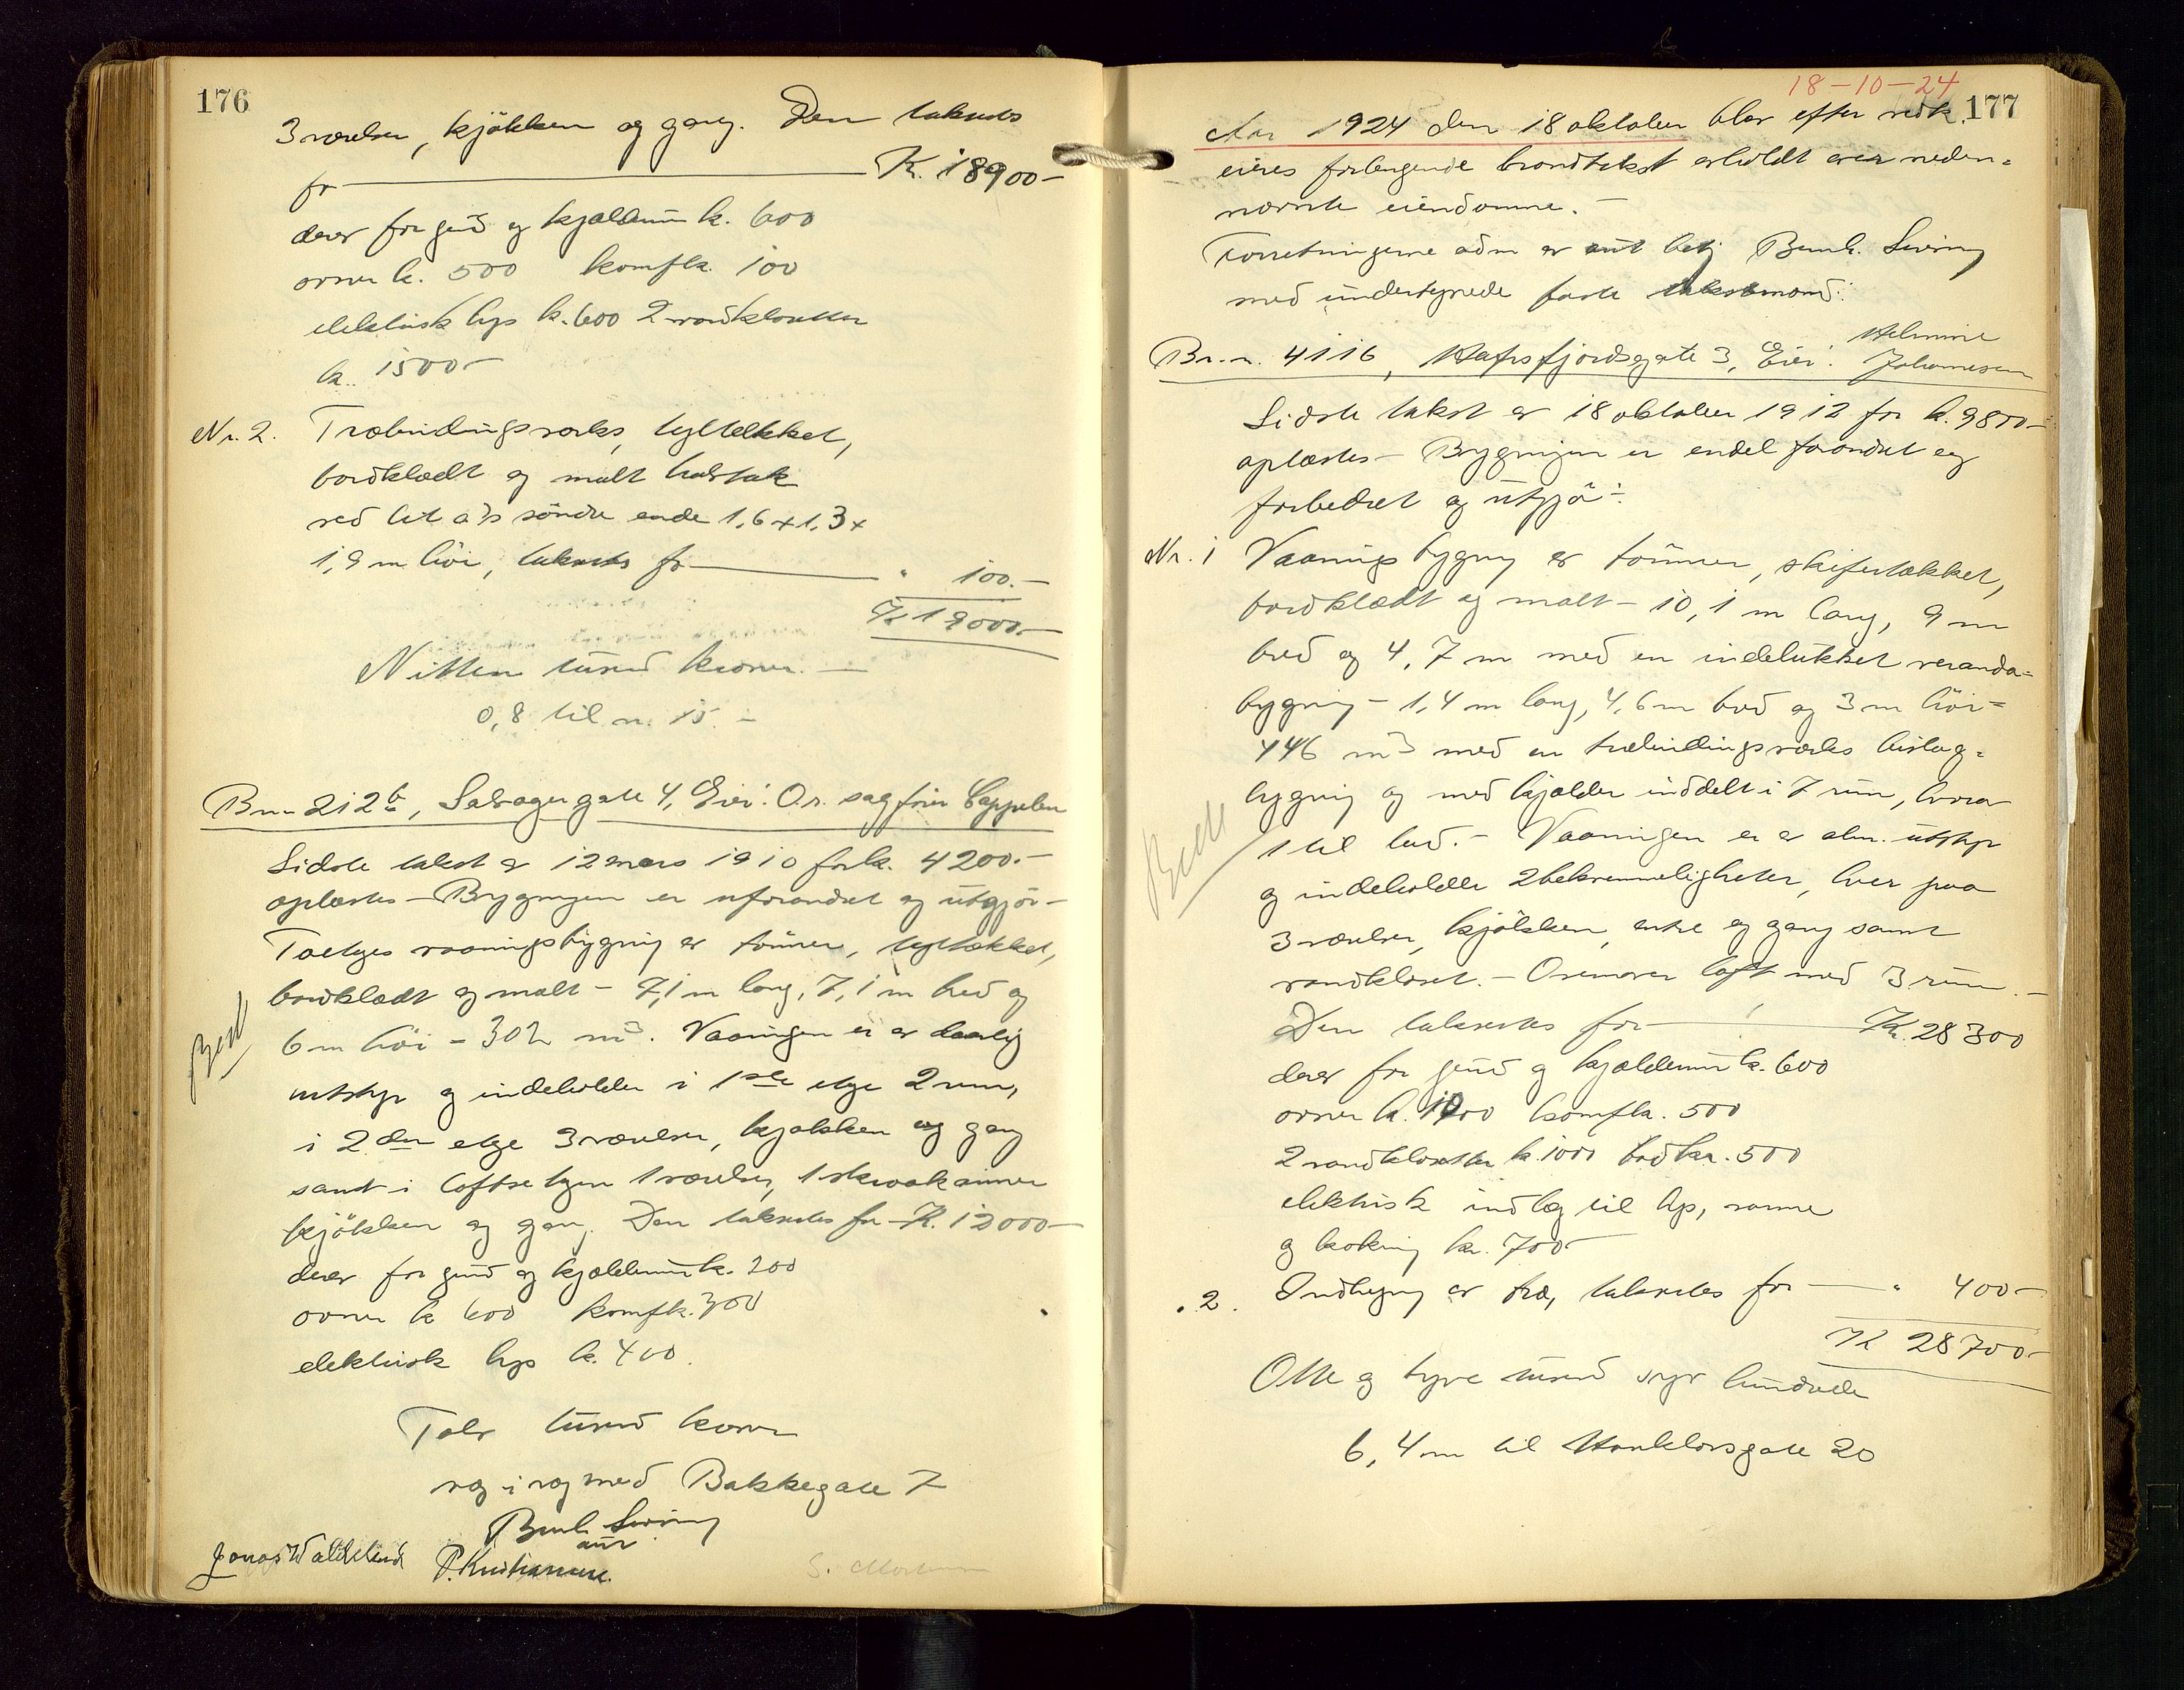 176
3 værelser, kjökken og gang. Den takseres
for K. 18900-
derav for grund og kjældermur k. 600
ovner k. 500 komfk. 100
elektrisk lys k. 600 2 vandklosetter
k. 1500-
Nr. 2. Træbindingsverks, tegltækket,
bordklædt og malt halvtak
ved söndre ende 1,6 x 1,3 x
1,9 m höi, takseres for " 100.-
K. 19000.-
Nitten tusind kroner. -
0,8 til nr. 15. -
Br.nr. 212b, Salvagergate 4, Eier: O.r. sagförer Cappelen
Sidste takst av 12 mars 1910 for k. 4200.-
oplæstes - Bygningen er uforandret og utgjör -
Toetages vaaningsbygning av tömmer, tegltækket,
bordklædt og malt - 7,1 m lang, 7,1 m bred og
6 m höi - 302 m3. Vaaningen er av daarlig
utstyr og indeholder i 1ste etage 2 rum,
i 2den etage 3 værelser, kjökken og gang
samt i loftsetagen 1 værelse, 1 skraakammer
kjökken og gang. Den takseres for K. 12000-
derav for grund og kjældermur k. 200
ovner k. 600 komfk. 300
elektrisk lys k. 400.
Tolv tusind kroner
væg i væg med Bakkegate 7
Bernh. Sivring
aut.
P. Kristiansen.
18-10-24
177
Aar 1924 den 18 oktober blev efter vedk.
eieres forlangende brandtakst avholdt over neden-
nævnte eiendomme. -
Forretningerne adm. av aut. betj. Bernh. Sivring
med undertegnede faste takstmænd:
Br.nr. 4116, Hafrsfjordsgate 3, Eier: Helmine
Johannesen
Sidste takst av 18 oktober 1912 for k. 9800-
oplæstes - Bygningen er endel forandret og
forbedret og utgjör:
Nr. 1 Vaaningsbygning av tömmer, skifertækket,
bordklædt og malt - 10,1 m lang, 9 m
bred og 4,7 m med en indelukket veranda-
bygning - 1,4 m lang, 4,6 m bred og 3 m höi -
446 m3 med en træbindingsverks bislag-
bygning og med kjælder inddelt i 7 rum, hvorav
1 til bad. - Vaaningen er av alm. utstyr
og indeholder 2 bekvemmeligheter, hver paa
3 værelser, kjökken, entre og gang samt
vandkloset. - Ovenover loft med 3 rum. -
Den takseres for K. 28300
derav for grund og kjældermur k. 600
ovner k. 1000 komfk. 500
2 vandklosetter k. 1000 bad kr. 500
elektrisk indlæg til lys, varme
og kokning kr. 700-
" 2. Indhegning av træ, takseres for " 400-
K 28700-
Otte og tyve tusind syv hundrede
6,4 m til Haukligsgate 20